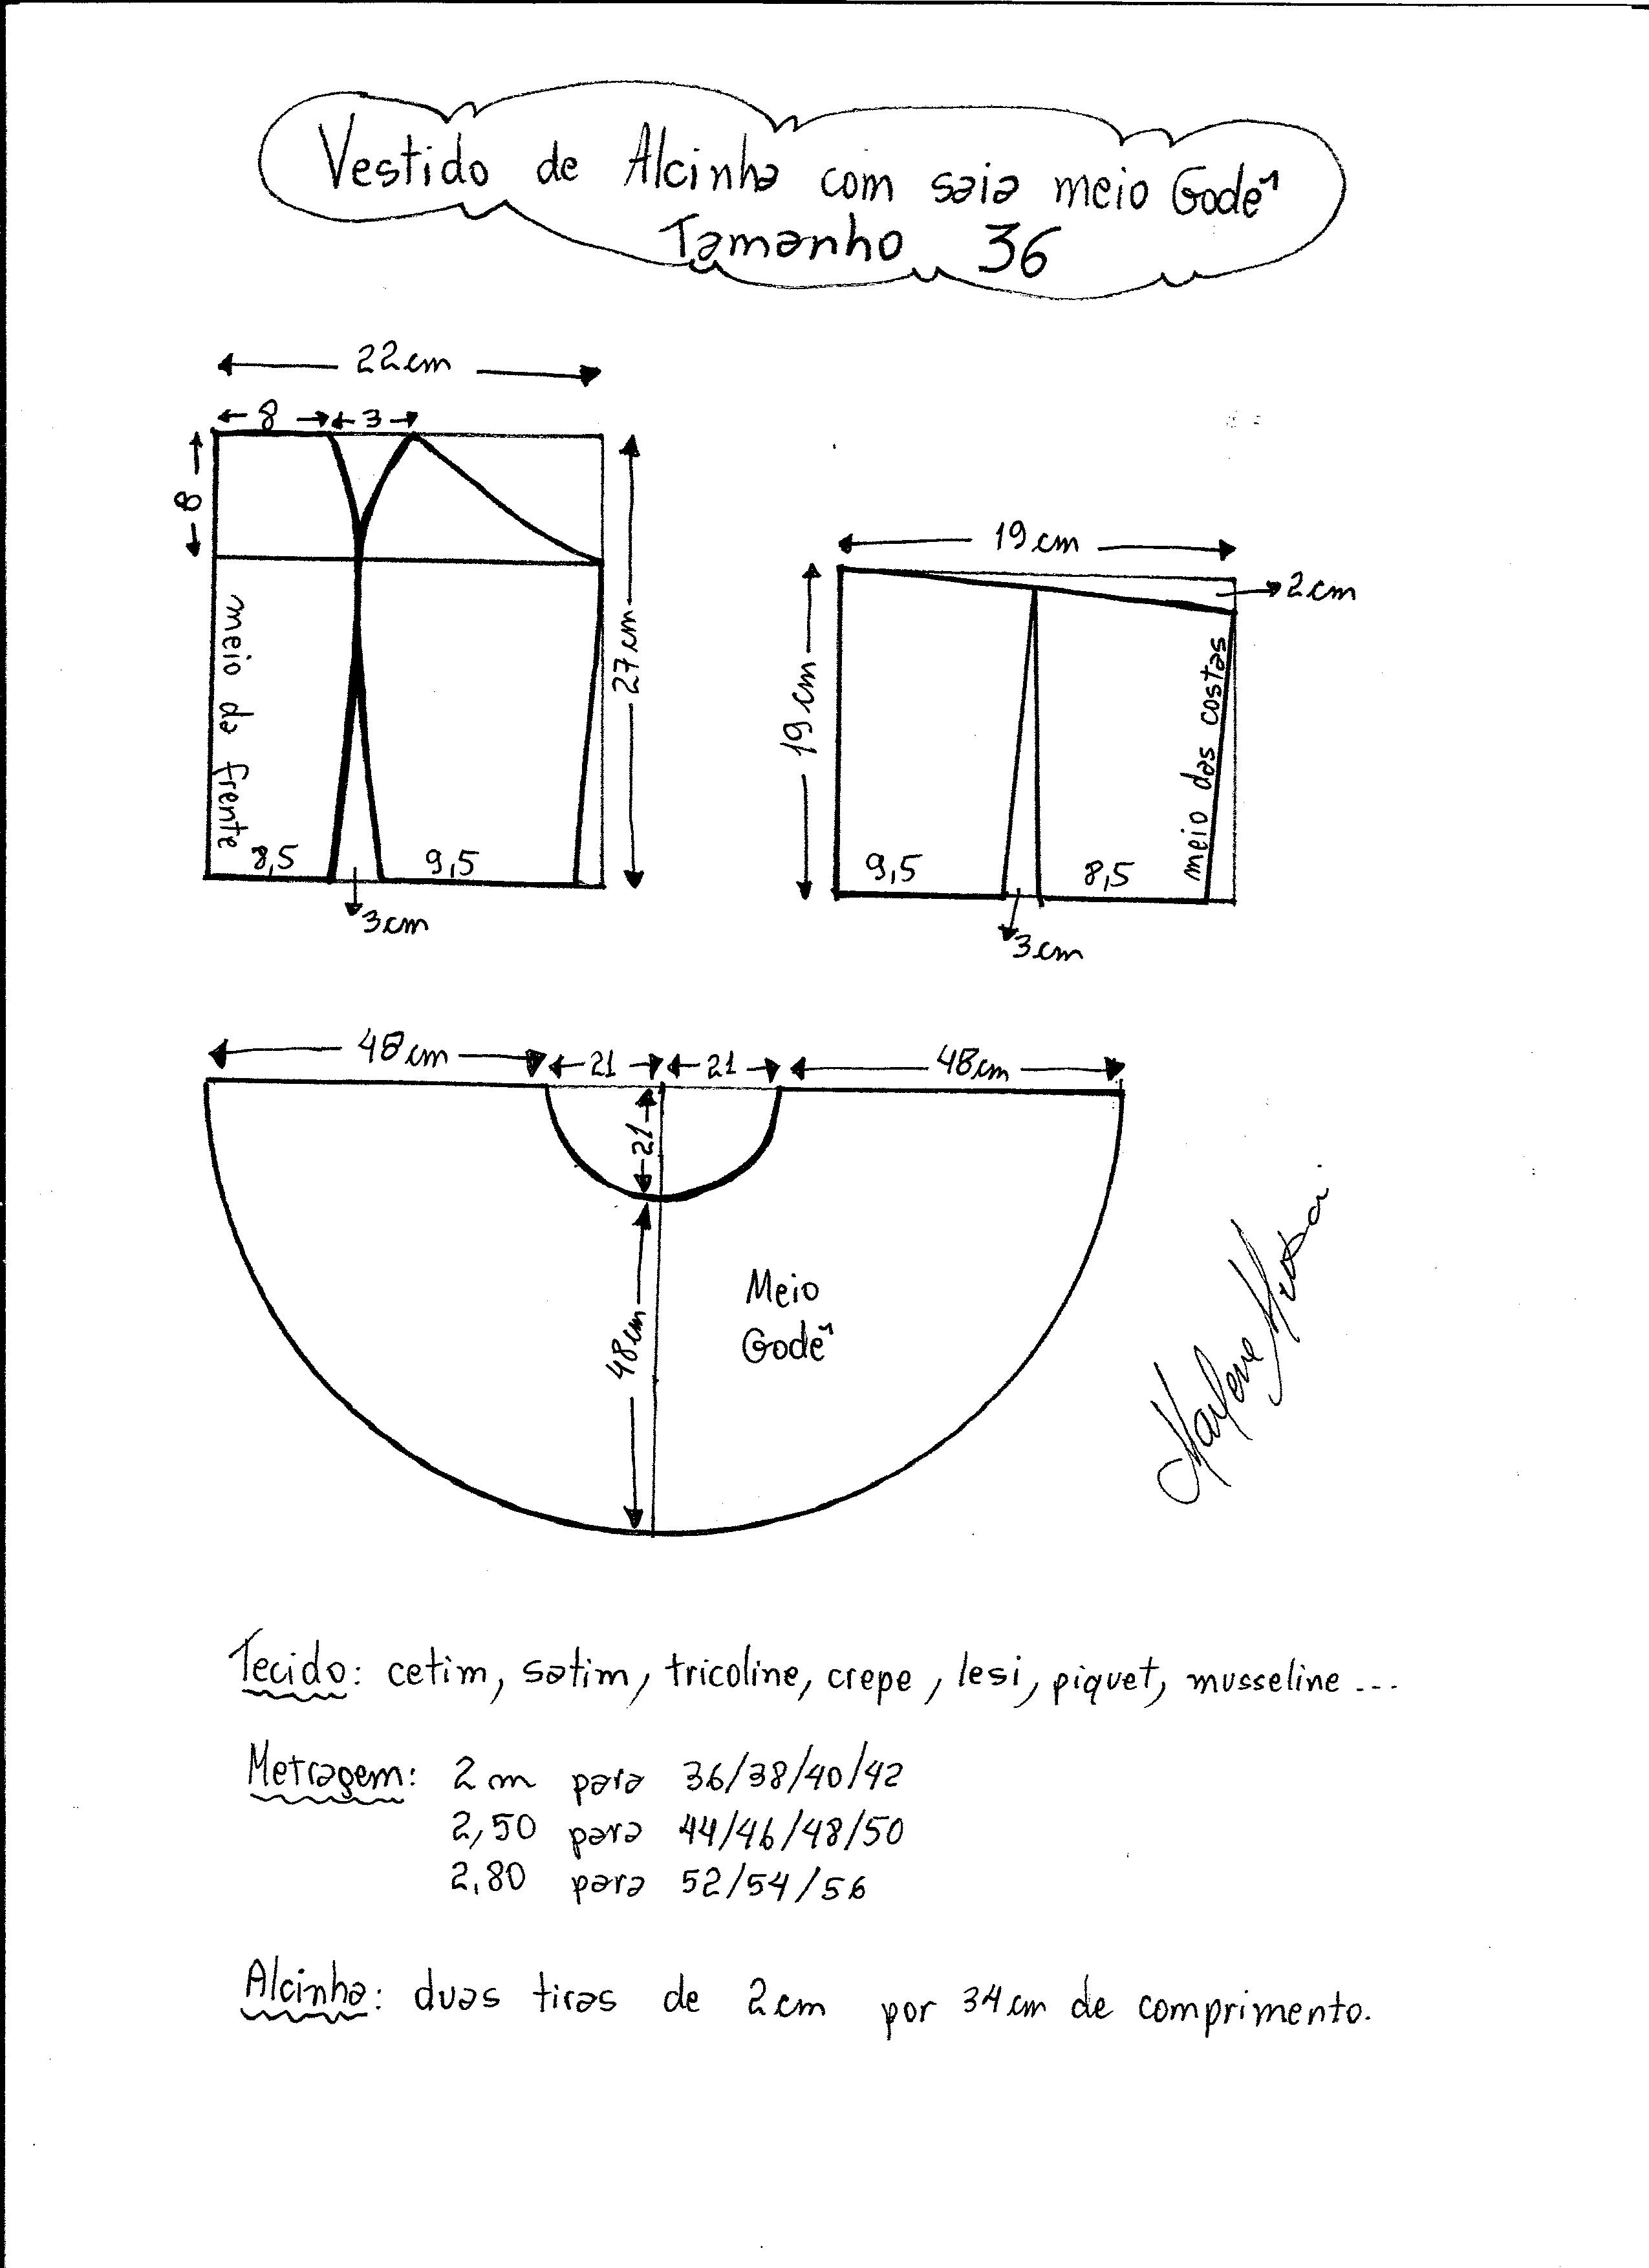 Vestido de Alcinha com saia meio Godê
Tamanho 36
22cm
8 3
8
meio da frente
27cm
8,5 9,5
3cm
19cm
2cm
19cm
meio das costas
9,5 8,5
3cm
48cm 21 21 48cm
21
48cm
Meio
Godê
Tecido: cetim, satim, tricoline, crepe, lesi, piquet, musseline ...
Metragem: 2m para 36/38/40/42
2,50 para 44/46/48/50
2,80 para 52/54/56
Alcinha: duas tiras de 2cm por 34cm de comprimento.